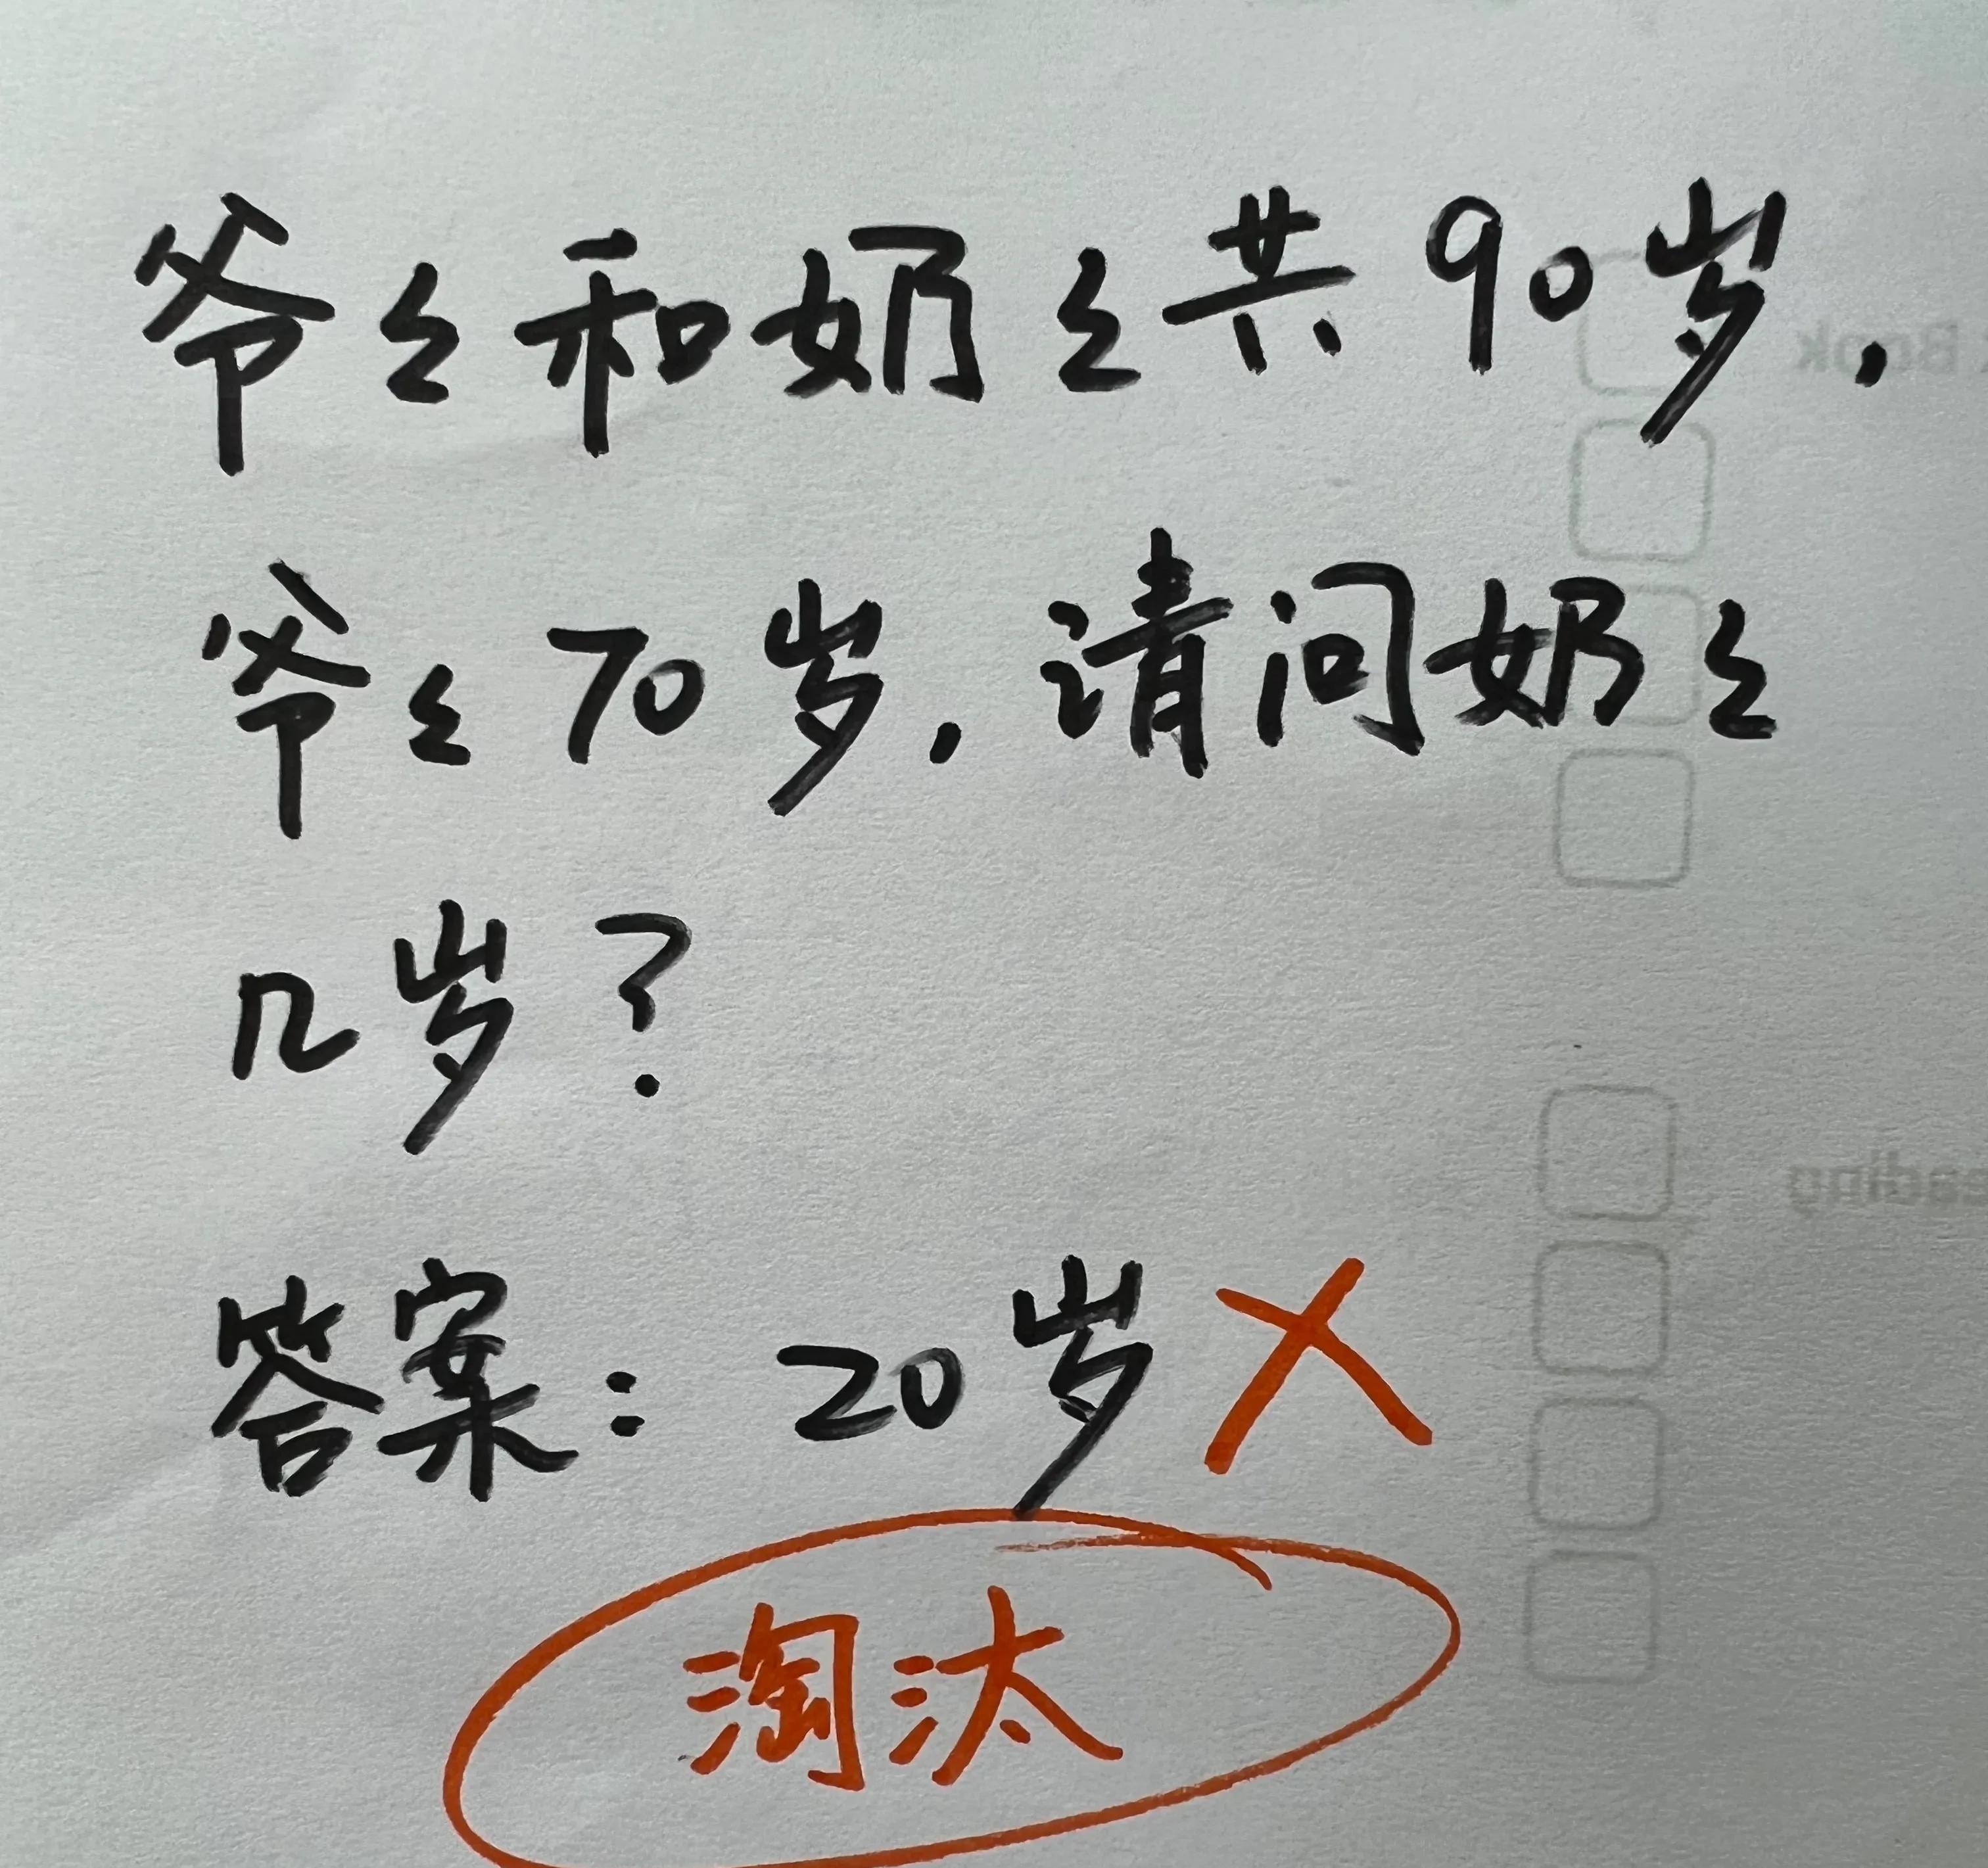 爷爷和奶奶共90岁,
爷爷70岁,请问奶奶
几岁?
答案:20岁 ×
淘汰
Book
eading